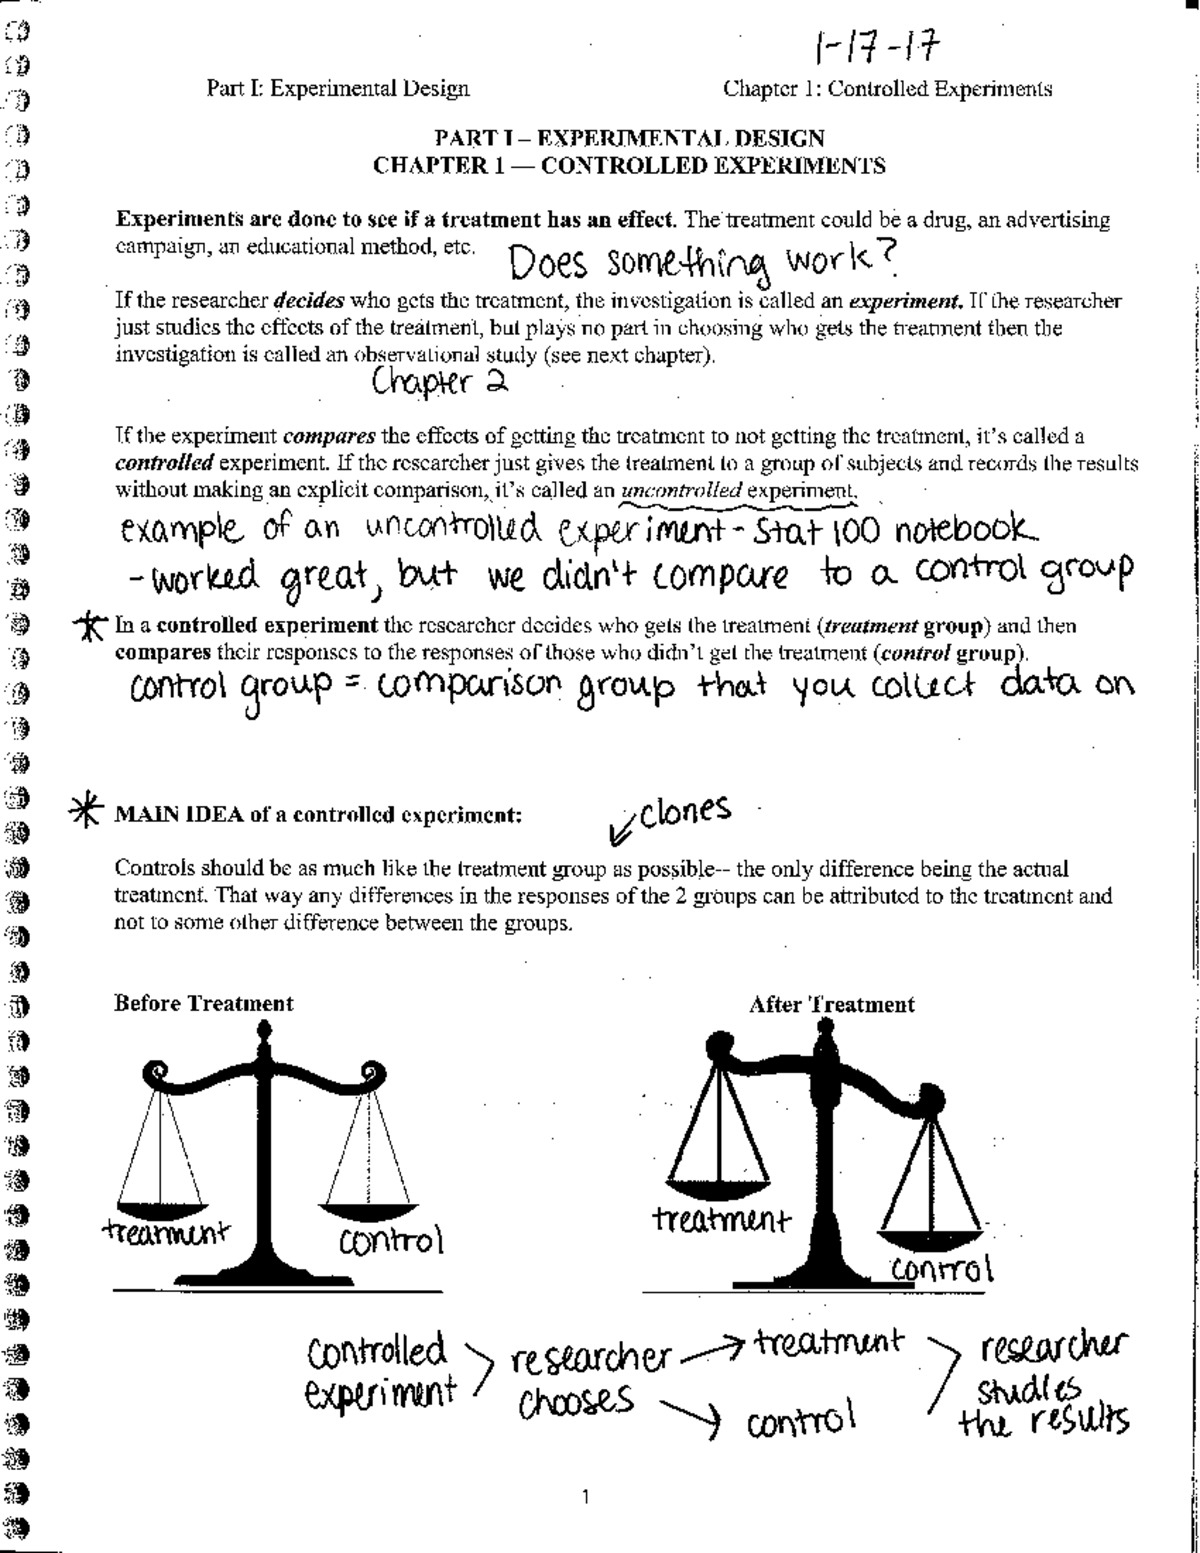 1-17-17
Part I: Experimental Design Chapter 1: Controlled Experiments
PART I – EXPERIMENTAL DESIGN
CHAPTER 1 — CONTROLLED EXPERIMENTS
Experiments are done to see if a treatment has an effect. The treatment could be a drug, an advertising
campaign, an educational method, etc.
Does something work?
If the researcher decides who gets the treatment, the investigation is called an experiment. If the researcher
just studies the effects of the treatment, but plays no part in choosing who gets the treatment then the
investigation is called an observational study (see next chapter).
Chapter 2
If the experiment compares the effects of getting the treatment to not getting the treatment, it's called a
controlled experiment. If the researcher just gives the treatment to a group of subjects and records the results
without making an explicit comparison, it's called an uncontrolled experiment.
example of an uncontrolled experiment - Stat 100 notebook
- worked great, but we didn't compare to a control group
* In a controlled experiment the researcher decides who gets the treatment (treatment group) and then
compares their responses to the responses of those who didn't get the treatment (control group).
control group = comparison group that you collect data on
* MAIN IDEA of a controlled experiment:
clones
Controls should be as much like the treatment group as possible-- the only difference being the actual
treatment. That way any differences in the responses of the 2 groups can be attributed to the treatment and
not to some other difference between the groups.
Before Treatment After Treatment
treatment control
treatment control
controlled experiment
researcher chooses
treatment
control
researcher studies the results
1